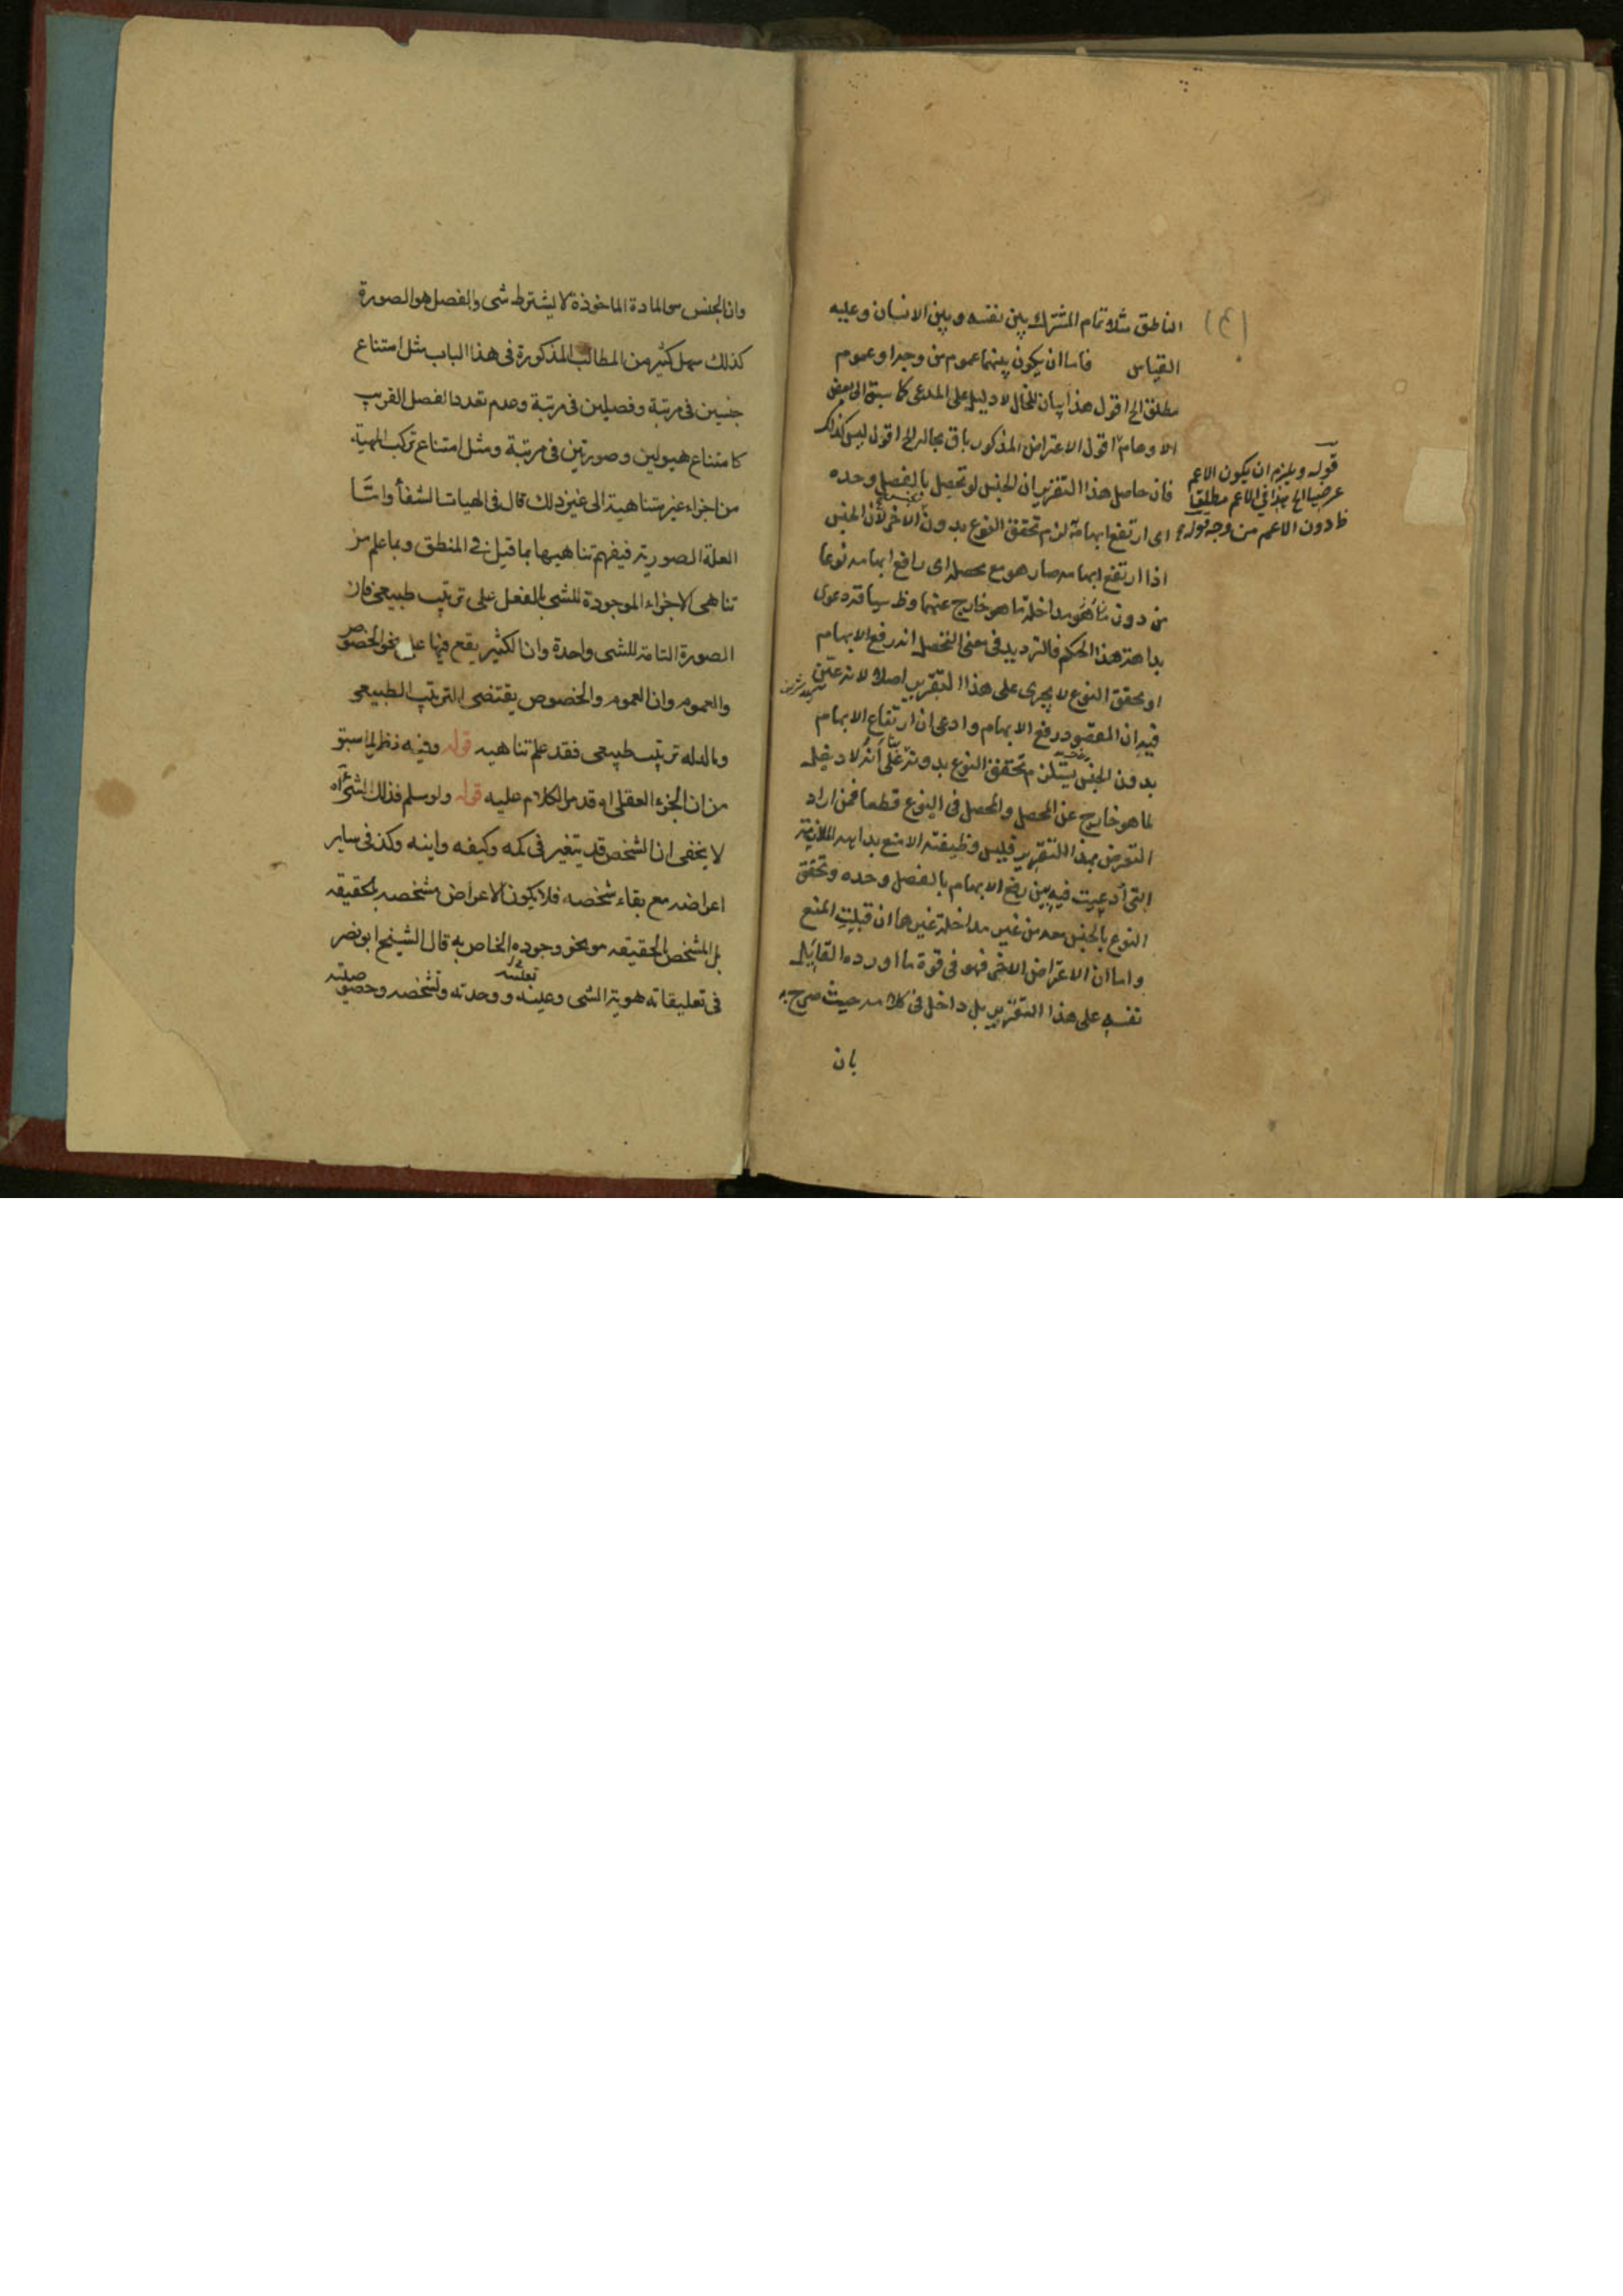 الناطق مثلا تمام المشترك بين نفسه وبين الانسان وعليه
القياس فاما ان يكون بينهما عموم من وجه او عموم
مطلق الخ اقول هذا بيان للحال لا دليل على المدعى كما سبق الى بعض
الاوهام اقول الاعتراض المذكور باق بحاله الخ اقول ليس كذلك
فان حاصل هذا التقرير ان الجنس لو تحصل بالفصل وحده
اى ارتفع ابهامه لزم تحقق النوع بدون الاخر لأن الجنس
اذا ارتفع ابهامه صار هو مع محصله اى رافع ابهامه نوعا
من دون مداخلة ما هو خارج عنهما وظ سياقه دعوى
بداهة هذا الحكم فالترديد فى معنى التحصل انه رفع الابهام
او تحقق النوع لا يجرى على هذا التقرير اصلا لانه عين
فيه ان المقصود رفع الابهام وادعى ان ارتفاع الابهام
بدون الجنس يستلزم تحقق النوع بدونه على أنه لا دخل
لما هو خارج عن المحصل والمحصل فى النوع قطعا فمن اراد
التعرض بهذا التقرير فليس وظيفته الا منع بداهه الملازمة
التى أدعيت فيه بين رفع الابهام بالفصل وحده وتحقق
النوع بالجنس معه من غير مداخلة غيرها ان قبلت المنع
واما ان الاعتراض الاخر فهو فى قوة ما اورده القايل
نفسه على هذا التقرير بل داخل فى كلامه حيث صرح به
بان
قوله ويلزم ان يكون الاعم
عرضيا الخ هذا فى الاعم مطلقا
ظ دون الاعم من وجه
وان الجنس هى المادة الماخوذة لا بشرط شى والفصل هو الصورة
كذلك سهل كثير من المطالب المذكورة فى هذا الباب مثل امتناع
جنسين فى مرتبة وفصلين فى مرتبة وعدم تعدد الفصل القريب
كامتناع هيولين وصورتين فى مرتبة ومثل امتناع تركب المهية
من اجزاء غير متناهية الى غير ذلك قال فى الهيات الشفأ واما
العلة الصورية فيفهم تناهيها بما قيل فى المنطق وبما علم من
تناهى الاجزاء الموجودة للشى بالفعل على ترتيب طبيعى فان
الصورة التامة للشى واحدة وان الكثير يقع فيها على نحو الخصوص
والعموم وان العموم والخصوص يقتضى الترتيب الطبيعى
وما له ترتيب طبيعى فقد علم تناهيه قوله وفيه نظر لما سبق
من ان الجزء العقلى اه قد مر الكلام عليه قوله ولو سلم فذلك
لا يخفى ان الشخص قد يتغير فى كمه وكيفه واينه وكذ فى ساير
اعراضه مع بقاء شخصه فلا يكون الاعراض مشخصه بالحقيقه
بل المشخص بالحقيقه هو نحو وجوده الخاص به قال الشيخ ابو نصر
فى تعليقاته هوية الشى وعينه ووحدته وتشخصه وخصوصيته